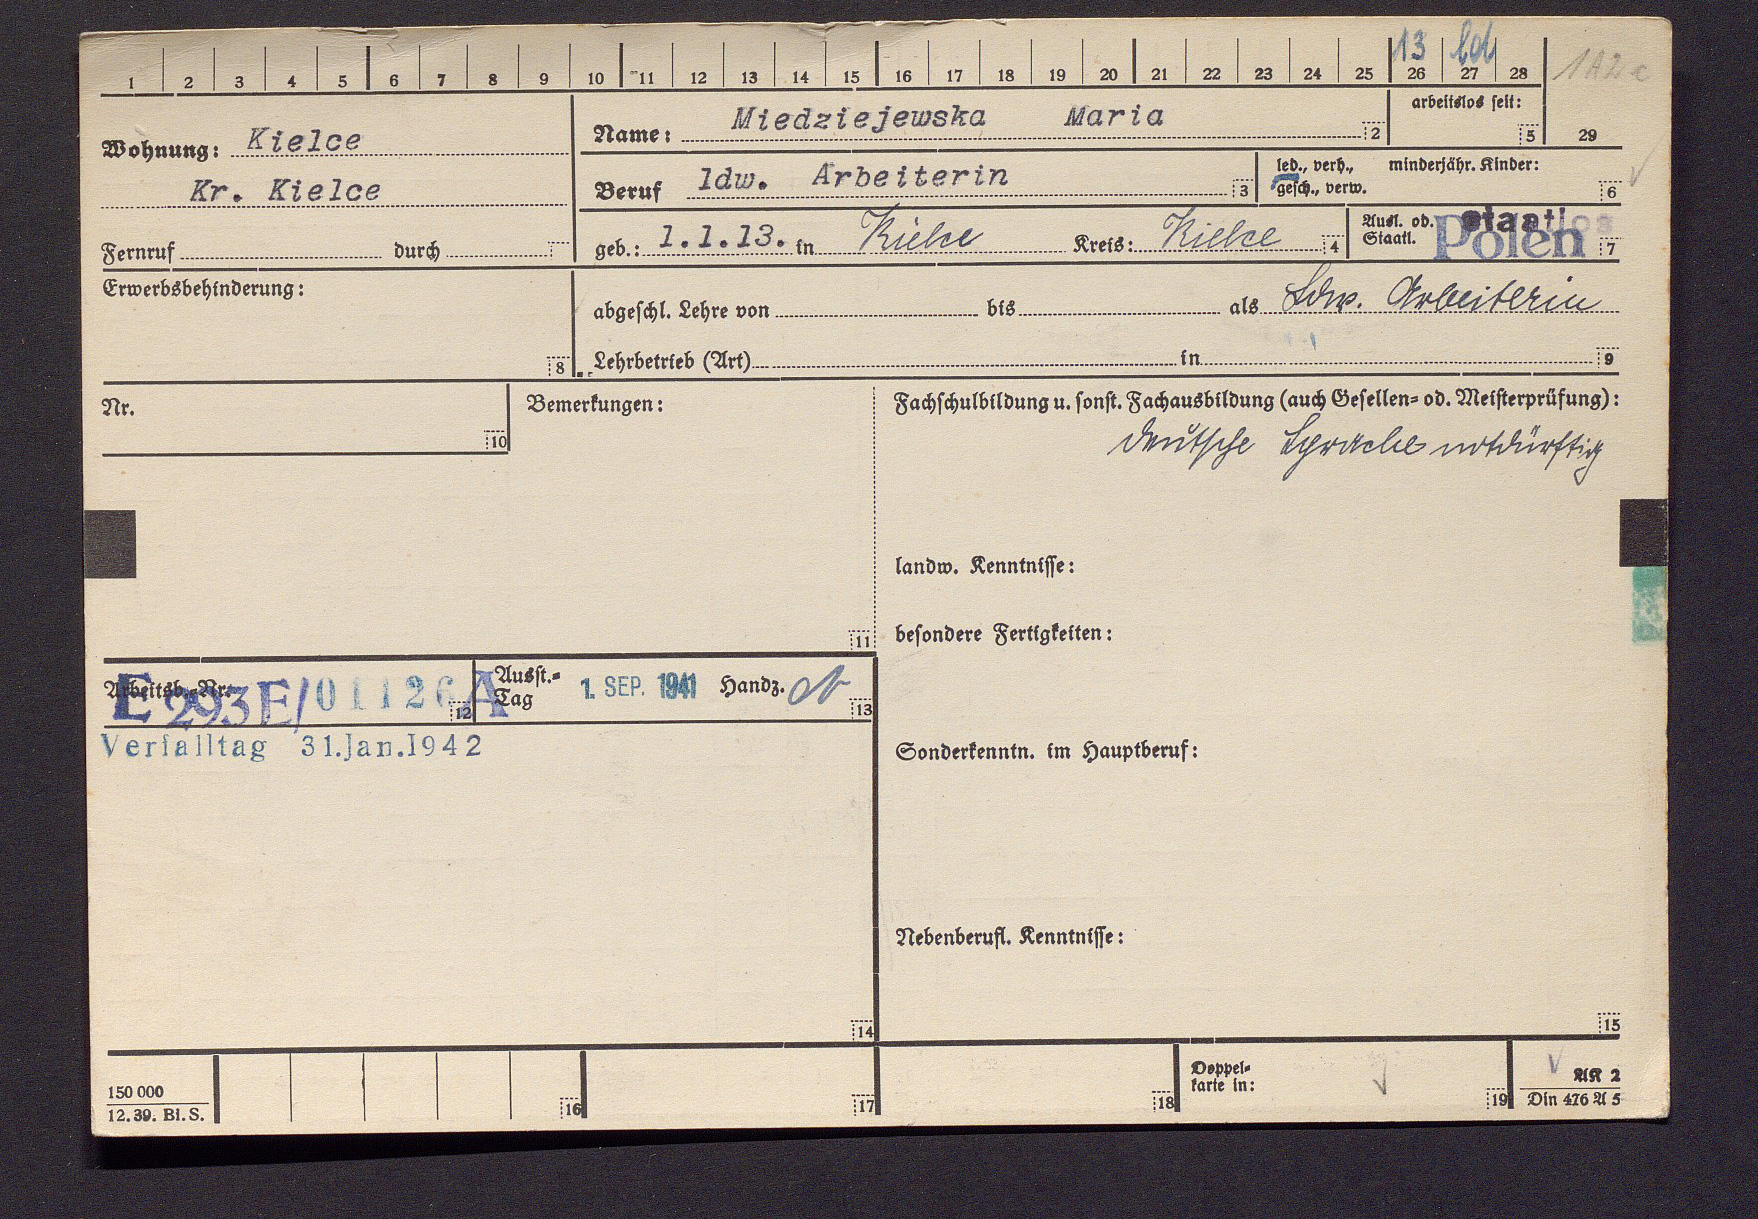 13 led
1 2 3 4 5 6 7 8 9 10 11 12 13 14 15 16 17 18 19 20 21 22 23 24 25 26 27 28
1A2c
Wohnung: Kielce
Kr. Kielce
Fernruf durch
Name: Miedziejewska Maria 2
arbeitslos seit: 5
29
Beruf ldw. Arbeiterin 3
led., verh., gesch., verw.
minderjähr. Kinder: 6
geb.: 1.1.13. in Kielce Kreis: Kielce 4
Ausl. od. Staatl. staatlos Polen 7
Erwerbsbehinderung: 8
abgeschl. Lehre von bis als Ldw. Arbeiterin
Lehrbetrieb (Art) in 9
Nr. 10
Bemerkungen: 11
Fachschulbildung u. sonst. Fachausbildung (auch Gesellen- od. Meisterprüfung):
deutsche Sprache notdürftig
landw. Kenntnisse:
besondere Fertigkeiten:
Arbeitsb.-Nr. E 293E/01126 A 12
Ausst.-Tag 1. SEP. 1941 Handz. 13
Verfalltag 31.Jan.1942
14
Sonderkenntn. im Hauptberuf:
Nebenberufl. Kenntnisse:
15
150 000
12. 39. Bl. S.
16 17 18
Doppel-
karte in: 19
AK 2
Din 476 A 5